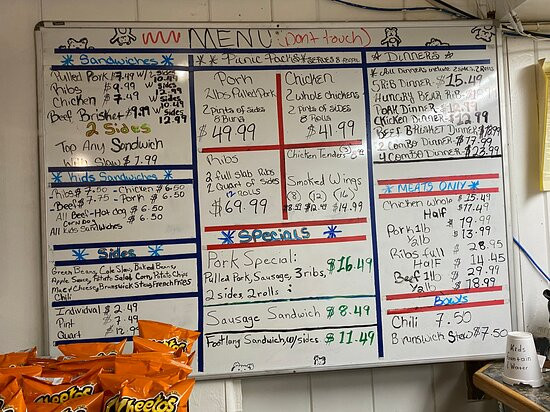 MENU (Don't touch)
Sandwiches
Pulled Pork $7.49 w/2 sides 10.49
Ribs $9.99 w/2 sides 12.99
Chicken $7.49 w/2 sides
Beef Brisket $9.99 w/2 sides 12.99
2 Sides
Top Any Sandwich
With Slaw $ .99
Kids Sandwiches
Ribs $7.50 - Chicken $6.50
Beef $7.75 - Pork $6.50
All Beef Hot dog $6.50
Corn Dog
All Kids Sandwiches
Sides
Green Beans, Cole Slaw, Baked Beans,
Apple Sauce, Potato Salad, Corn, Potato Chips
Mac & Cheese, Brunswick Stew, French Fries
Chili
Individual $2.49
Pint $7.49
Quart $12.99
Picnic Packs SERVES 8 People
Pork
2 lbs Pulled Pork
2 pints of sides
8 Buns
$49.99
Chicken
2 whole chickens
2 pints of sides
8 Rolls
$41.99
Ribs
2 full slab Ribs
1 Quart of sides
Rolls
$69.99
Chicken Tenders
Smoked Wings
(8) (12) (16)
$12.49 $14.99
SPECIALS
Pork Special:
Pulled Pork, Sausage, 3 ribs, $16.49
2 sides, 2 rolls
Sausage Sandwich $8.49
Footlong Sandwich, w/ sides $11.49
DINNERS
All Dinners include 2 sides, 2 Rolls
3 RIB DINNER $15.49
HUNGRY BEAR RIB
PORK DINNER $12.99
Chicken DINNER $12.99
BEEF BRISKET DINNER
2 COMBO DINNER
4 COMBO DINNER $23.99
MEATS ONLY
Chicken whole $15.49
Half
Pork 1lb 19.99
1/2lb
Ribs full $28.95
Half $14.45
Beef 1lb $29.99
1/2lb $18.99
Bowls
Chili 7.50
Brunswick Stew $7.50
Kids
Fountain
Water
Cheetos
Cheetos